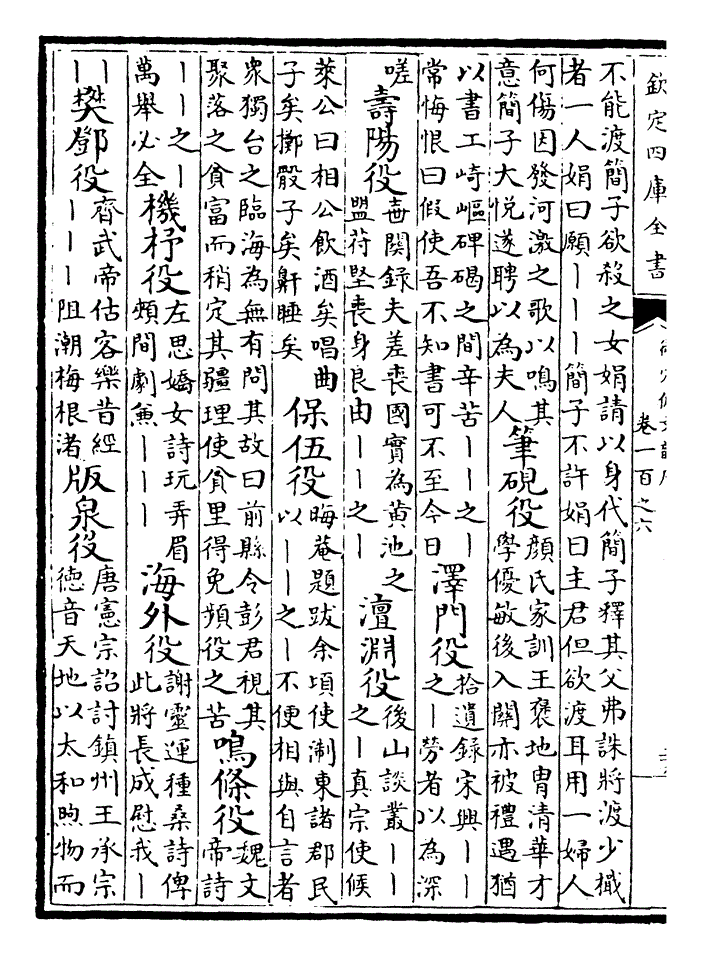 欽定四庫全書
御定佩文韻府 卷一百之六
不能渡簡子欲殺之女娟請以身代簡子釋其父弗誅將渡少檝
者一人娟曰願｜｜｜簡子不許娟曰主君但欲渡耳用一婦人
何傷因發河激之歌以鳴其
意簡子大悅遂聘以為夫人
筆硯役
顏氏家訓王褒地胄清華才
學優敏後入關亦被禮遇猶
以書工崎嶇碑碣之間辛苦｜｜之｜
常悔恨曰假使吾不知書可不至今日
澤門役
拾遺錄宋興｜｜
之｜勞者以為深
嗟
壽陽役
世閱錄夫差喪國實為黃池之
盟苻堅喪身良由｜｜之｜
澶淵役
後山談叢｜｜
之｜真宗使候
萊公曰相公飲酒矣唱曲
子矣擲骰子矣鼾睡矣
保伍役
晦菴題跋余頃使淛東諸郡民
以｜｜之｜不便相與自言者
衆獨台之臨海為無有問其故曰前縣令彭君視其
聚落之貧富而稍定其疆理使貧里得免頻役之苦
鳴條役
魏文
帝詩
｜｜之｜
萬舉必全
機杼役
左思嬌女詩玩弄眉
頰間劇兼｜｜｜
海外役
謝靈運種桑詩俾
此將長成慰我｜
｜
｜
樊鄧役
齊武帝估客樂昔經
｜｜｜阻潮梅根渚
版泉役
唐憲宗詔討鎮州王承宗
德音天地以太和煦物而